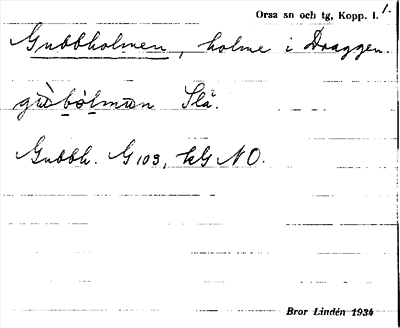 Orsa sn och tg, Kopp. l. 1.
Gubbholmen, holme i Draggen.
gùbòlmän Slå.
Gubbh. G 103, kG NO.
Bror Lindén 1934